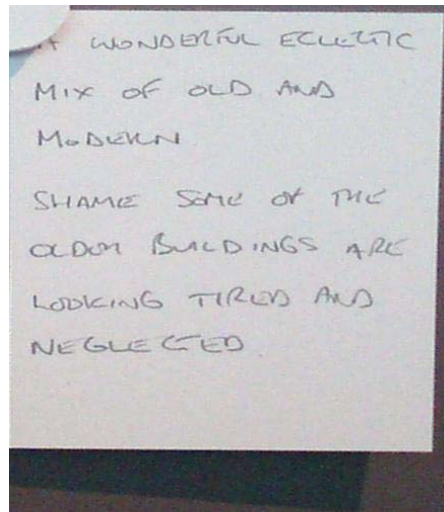 A WONDERFUL ECLECTIC
MIX OF OLD AND
MODERN
SHAME SOME OF THE
OLDER BUILDINGS ARE
LOOKING TIRED AND
NEGLECTED